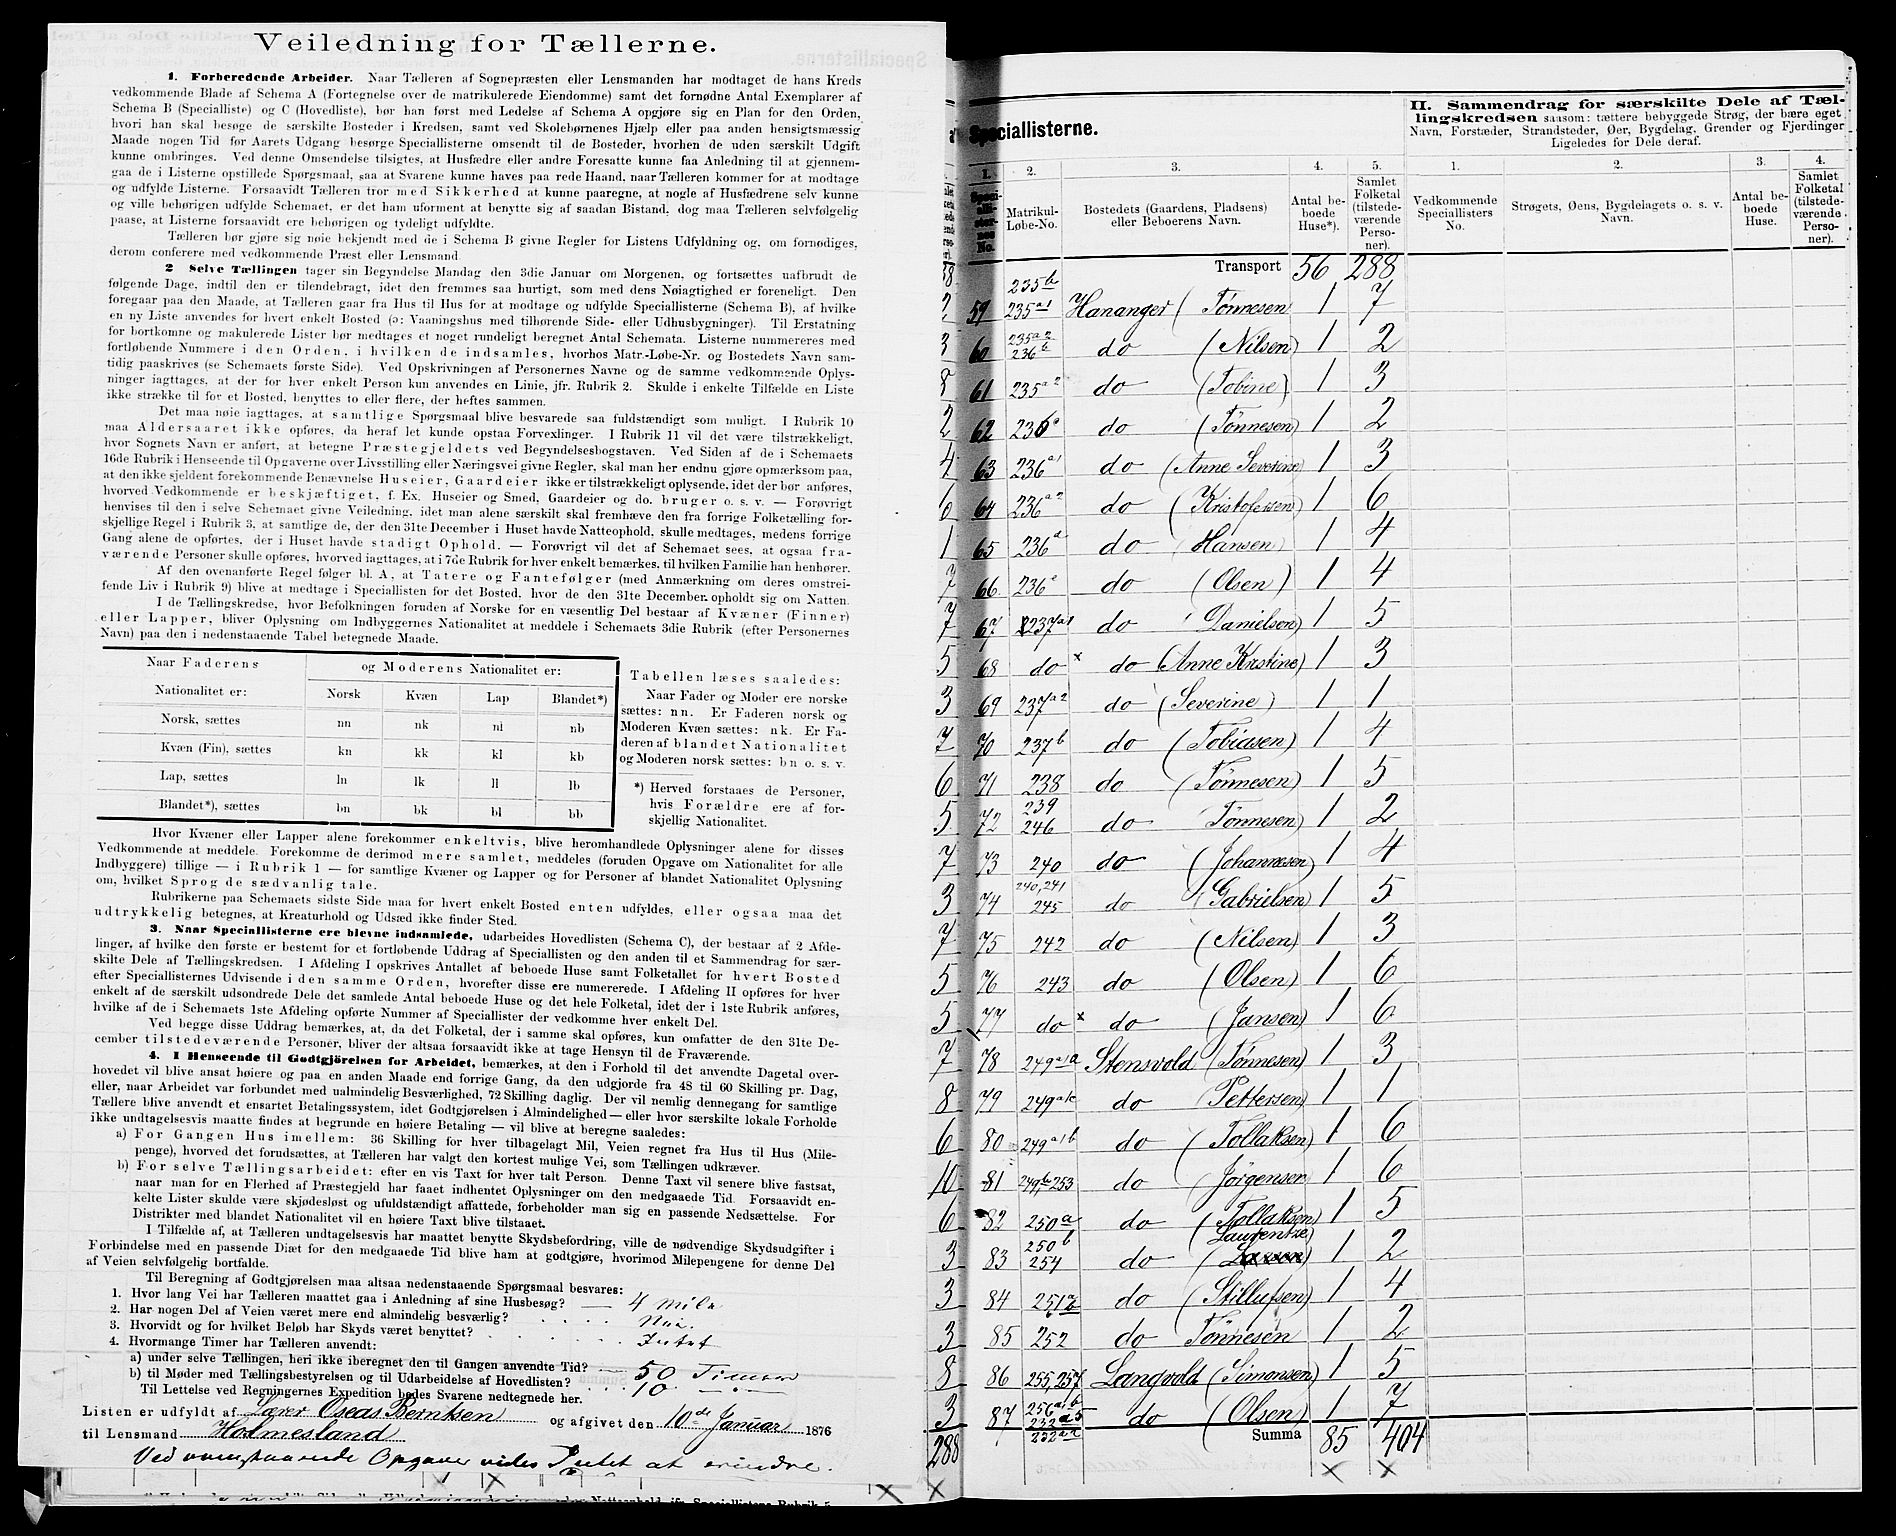 Veiledning for Tællerne.
1. Forberedende Arbeider. Naar Tælleren af Sognepræsten eller Lensmanden har modtaget de hans Kreds
vedkommende Blade af Schema A (Fortegnelse over de matrikulerede Eiendomme) samt det fornødne Antal Exemplarer af
Schema B (Specialliste) og C (Hovedliste), bør han først med Ledelse af Schema A opgjøre sig en Plan for den Orden,
hvori han skal besøge de særskilte Bosteder i Kredsen, samt ved Skolebørnenes Hjælp eller paa anden hensigtsmæssig
Maade nogen Tid før Aarets Udgang besørge Speciallisterne omsendt til de Bosteder, hvorhen de uden særskilt Udgift
kunne ombringes. Ved denne Omsendelse tilsigtes, at Husfædre eller andre Foresatte kunne faa Anledning til at gjennem-
gaa de i Listerne opstillede Spørgsmaal, saa at Svarene kunne haves paa rede Haand, naar Tælleren kommer for at modtage
og udfylde Listerne. Forsaavidt Tælleren tror med Sikkerhed at kunne paaregne, at nogle af Husfædrene selv kunne
og ville behørigen udfylde Schemaet, er det ham uforment at benytte sig af saadan Bistand, dog maa Tælleren selvfølgelig
paase, at Listerne forsaavidt ere behørigen og tydeligt udfyldte.
Tælleren bør gjøre sig nøie bekjendt med de i Schema B givne Regler for Listens Udfyldning og, om fornødiges,
derom conferere med vedkommende Præst eller Lensmand.
2 Selve Tællingen tager sin Begyndelse Mandag den 3die Januar om Morgenen, og fortsættes uafbrudt de
følgende Dage, indtil den er tilendebragt, idet den fremmes saa hurtigt, som med dens Nøiagtighed er foreneligt. Den
foregaar paa den Maade, at Tælleren gaar fra Hus til Hus for at modtage og udfylde Speciallisterne (Schema B), af hvilke
en ny Liste anvendes for hvert enkelt Bosted (ɔ: Vaaningshus med tilhørende Side- eller Udhusbygninger). Til Erstatning
for bortkomne og makulerede Lister bør medtages et noget rundeligt beregnet Antal Schemata. Listerne nummereres med
fortløbende Nummere i den Orden, i hvilken de indsamles, hvorhos Matr.-Løbe-Nr. og Bostedets Navn sam-
tidig paaskrives (se Schemaets første Side). Ved Opskrivningen af Personernes Navne og de samme vedkommende Oplys-
ninger iagttages, at der for hver enkelt Person kun anvendes en Linie, jfr. Rubrik 2. Skulde i enkelte Tilfælde en Liste
ikke strække til for et Bosted, benyttes to eller flere, der heftes sammen.
Det maa nøie iagttages, at samtlige Spørgsmaal blive besvarede saa fuldstændigt som muligt. I Rubrik 10
maa Aldersaaret ikke opføres, da heraf let kunde opstaa Forvexlinger. I Rubrik 11 vil det være tilstrækkeligt,
hvor Sognets Navn er anført, at betegne Præstegjeldets ved Begyndelsesbogstaven. Ved Siden af de i Schemaets
16de Rubrik i Henseende til Opgaverne over Livsstilling eller Næringsvei givne Regler, skal man her endnu gjøre opmærksom paa,
at den ikke sjeldent forekommende Benævnelse Huseier, Gaardeier ikke er tilstrækkeligt oplysende, idet der bør anføres,
hvorved Vedkommende er beskjæftiget, f. Ex. Huseier og Smed, Gaardeier og do. bruger o. s. v. — Forøvrigt
henvises til den i selve Schemaet givne Veiledning, idet man alene særskilt skal fremhæve den fra forrige Folketælling for-
skjellige Regel i Rubrik 3, at samtlige de, der den 31te December i Huset havde Natteophold, skulle medtages, medens forrige
Gang alene de opførtes, der i Huset havde stadigt Ophold. — Forøvrigt vil det af Schemaet sees, at ogsaa fra-
værende Personer skulle opføres, hvorved iagttages, at i 7de Rubrik for hver enkelt bemærkes, til hvilken Familie han henhører.
Af den ovenanførte Regel følger bl. A, at Tatere og Fantefølger (med Anmærkning om deres omstrei-
fende Liv i Rubrik 9) blive at medtage i Speciallisten for det Bosted, hvor de den 31te December opholdt sig om Natten.
I de Tællingskredse, hvor Befolkningen foruden af Norske for en væsentlig Del bestaar af Kvæner (Finner)
eller Lapper, bliver Oplysning om Indbyggernes Nationalitet at meddele i Schemaets 3die Rubrik (efter Personernes
Navn) paa den i nedenstaaende Tabel betegnede Maade.
Naar Faderens Nationalitet er: og Moderens Nationalitet er:
Norsk Kvæn Lap Blandet*)
Norsk, sættes nn nk nl nb
Kvæn (Fin), sættes kn kk kl kb
Lap, sættes ln lk ll lb
Blandet*), sættes bn bk bl bb
Tabellen læses saaledes:
Naar Fader og Moder ere norske
sættes: nn. Er Faderen norsk og
Moderen Kvæn sættes: nk. Er Fa-
deren af blandet Nationalitet
og Moderen norsk sættes: bn o. s. v.
*) Herved forstaaes de Personer,
hvis Forældre ere af for-
skjellig Nationalitet.
Hvor Kvæner eller Lapper alene forekommer enkeltvis, blive heromhandlede Oplysninger alene for disses
Vedkommende at meddele. Forekomme de derimod mere samlet, meddeles (foruden Opgave om Nationalitet for alle
Indbyggere) tillige — i Rubrik 1 — for samtlige Kvæner og Lapper og for Personer af blandet Nationalitet Oplysning
om, hvilket Sprog de sædvanlig tale.
Rubrikerne paa Schemaets sidste Side maa for hvert enkelt Bosted enten udfyldes, eller ogsaa maa det
udtrykkelig betegnes, at Kreaturhold og Udsæd ikke finder Sted.
3. Naar Speciallisterne ere blevne indsamlede, udarbeides Hovedlisten (Schema C), der bestaar af 2 Afde-
linger, af hvilke den første er bestemt for et fortløbende Uddrag af Speciallisten og den anden til et Sammendrag for sær-
skilte Dele af Tællingskredsen. I Afdeling I opskrives Antallet af beboede Huse samt Folketallet for hvert Bosted
efter Speciallisternes Udvisende i den samme Orden, hvorefter disse ere nummererede. I Afdeling II opføres for hver
enkelt af de særskilt udsondrede Dele det samlede Antal beboede Huse og det hele Folketal, idet der i 1ste Rubrik anføres,
hvilke af de i Schemaets 1ste Afdeling opførte Nummer af Speciallister der vedkomme hver enkelt Del.
Ved begge disse Uddrag bemærkes, at, da det Folketal, der i samme skal opføres, kun omfatter de den 31te De-
cember tilstedeværende Personer, bliver der altsaa forsaavidt ikke at tage Hensyn til de Fraværende.
4. I Henseende til Godtgjörelsen for Arbeidet, bemærkes, at den i Forhold til det anvendte Dagetal over-
hovedet vil blive ansat høiere og paa en anden Maade end forrige Gang, da den udgjorde fra 48 til 60 Skilling pr. Dag,
eller, naar Arbeidet var forbundet med ualmindelig Besværlighed, 72 Skilling daglig. Der vil nemlig dennegang for samtlige
Tællere blive anvendt et ensartet Betalingssystem, idet Godtgjørelsen i Almindelighed — eller hvor særskilte lokale Forholde
ikke undtagelsesvis maatte findes at begrunde en høiere Betaling — vil blive at beregne saaledes:
a) For Gangen Hus imellem: 36 Skilling for hver tilbagelagt Mil, Veien regnet fra Hus til Hus (Mile-
penge), hvorved det forudsættes, at Tælleren har valgt den kortest mulige Vei, som Tællingen udkræver.
b) For selve Tællingsarbeidet: efter en vis Taxt for hver talt Person. Denne Taxt vil senere blive fastsat,
naar man for en Flerhed af Præstegjeld har faaet indhentet Oplysninger om den medgaaede Tid. Forsaavidt en-
kelte Lister skulde være skjødesløst og ufuldstændigt affattede, forbeholder man sig en passende Nedsættelse. For
Distrikter med blandet Nationalitet vil en høiere Taxt blive tilstaaet.
I Tilfælde af, at Tælleren undtagelsesvis har maattet benytte Skydsbefordring, ville de nødvendige Skydsudgifter i
Forbindelse med en passende Diæt for den medgaaede Tid blive ham at godtgjøre, hvorimod Milepengene for denne Del
af Veien selvfølgelig bortfalde.
Til Beregning af Godtgjørelsen maa altsaa nedenstaaende Spørgsmaal besvares:
1. Hvor lang Vei har Tælleren maattet gaa i Anledning af sine Husbesøg? 4 Mile
2. Har nogen Del af Veien været mere end almindelig besværlig?
3. Hvorvidt og for hvilket Beløb har Skyds været benyttet? Intet
4. Hvormange Timer har Tælleren anvendt:
a) under selve Tællingen, heri ikke iberegnet den til Gangen anvendte Tid? 50 Timer
b) til Møder med Tællingsbestyrelsen og til Udarbeidelse af Hovedlisten? 10 — —
Til Lettelse ved Regningernes Expedition bedes Svarene nedtegnede her.
Listen er udfyldt af Lærer Oseas Berntsen og afgivet den 10de Januar 1876
til Lensmand Holmesland
Ved ovenstaaende Opgaver vides Intet at erindre.
288
Speciallisterne.
II. Sammendrag for særskilte Dele af Tæl-
lingskredsen saasom: tættere bebyggede Strøg, der bære eget
Navn, Forstæder, Strandsteder, Øer, Bygdelag, Grender og Fjerdinger
Ligeledes for Dele deraf.
1. 2. 3. 4. 5. 1. 2. 3. 4.
Speci-alli-ster-nes No. Matrikul-Løbe-No. Bostedets (Gaardens, Pladsens) eller Beboerens Navn. Antal be-boede Huse*). Samlet Folketal (tilstede-værende Perso-ner). Vedkommende Speciallisters No. Strøgets, Øens, Bygdelagets o. s. v. Navn. Antal be-boede Huse. Samlet Folketal (tilstede-værende Perso-ner).
Transport 56 288
59 235b 235a1 Hananger (Tønnesen 1 7
60 235a2 236b do (Nilsen) 1 2
61 235a2 do (Tobine) 1 3
62 236 do (Tønnesen) 1 2
63 236a1 do (Anne Severine 1 3
64 236a2 do (Kristofersen) 1 6
65 236a do (Hansen) 1 4
66 236e do (Olsen) 1 4
67 237a1 do (Danielsen) 1 5
68 do x do (Anne Kristine) 1 3
69 237a2 do (Severine) 1 1
70 237b do (Tobiasen) 1 4
71 238 do (Tønnesen) 1 5
72 239 246 do (Tønnesen) 1 2
73 240 do (Johannesen) 1 4
74 240,241 245 do (Gabrielsen) 1 5
75 242 do (Nilsen) 1 3
76 243 do (Olsen) 1 6
77 do x do (Jansen) 1 6
78 249a1a Stensvold (Tønnesen) 1 3
79 249a1c do (Pettersen) 1 1
80 249a1b do (Tollaksen) 1 6
81 249b 253 do (Jörgensen 1 6
82 250a do (Tollaksen) 1 5
83 250b 254 do (Laurentze) 1 2
84 251 do (Stillufsen) 1 4
85 252 do Tønnesen 1 2
86 255,257 Langvold (Simonsen) 1 5
87 256a1b 232a5 232aa do (Olsen) 1 7
Summa 85 404